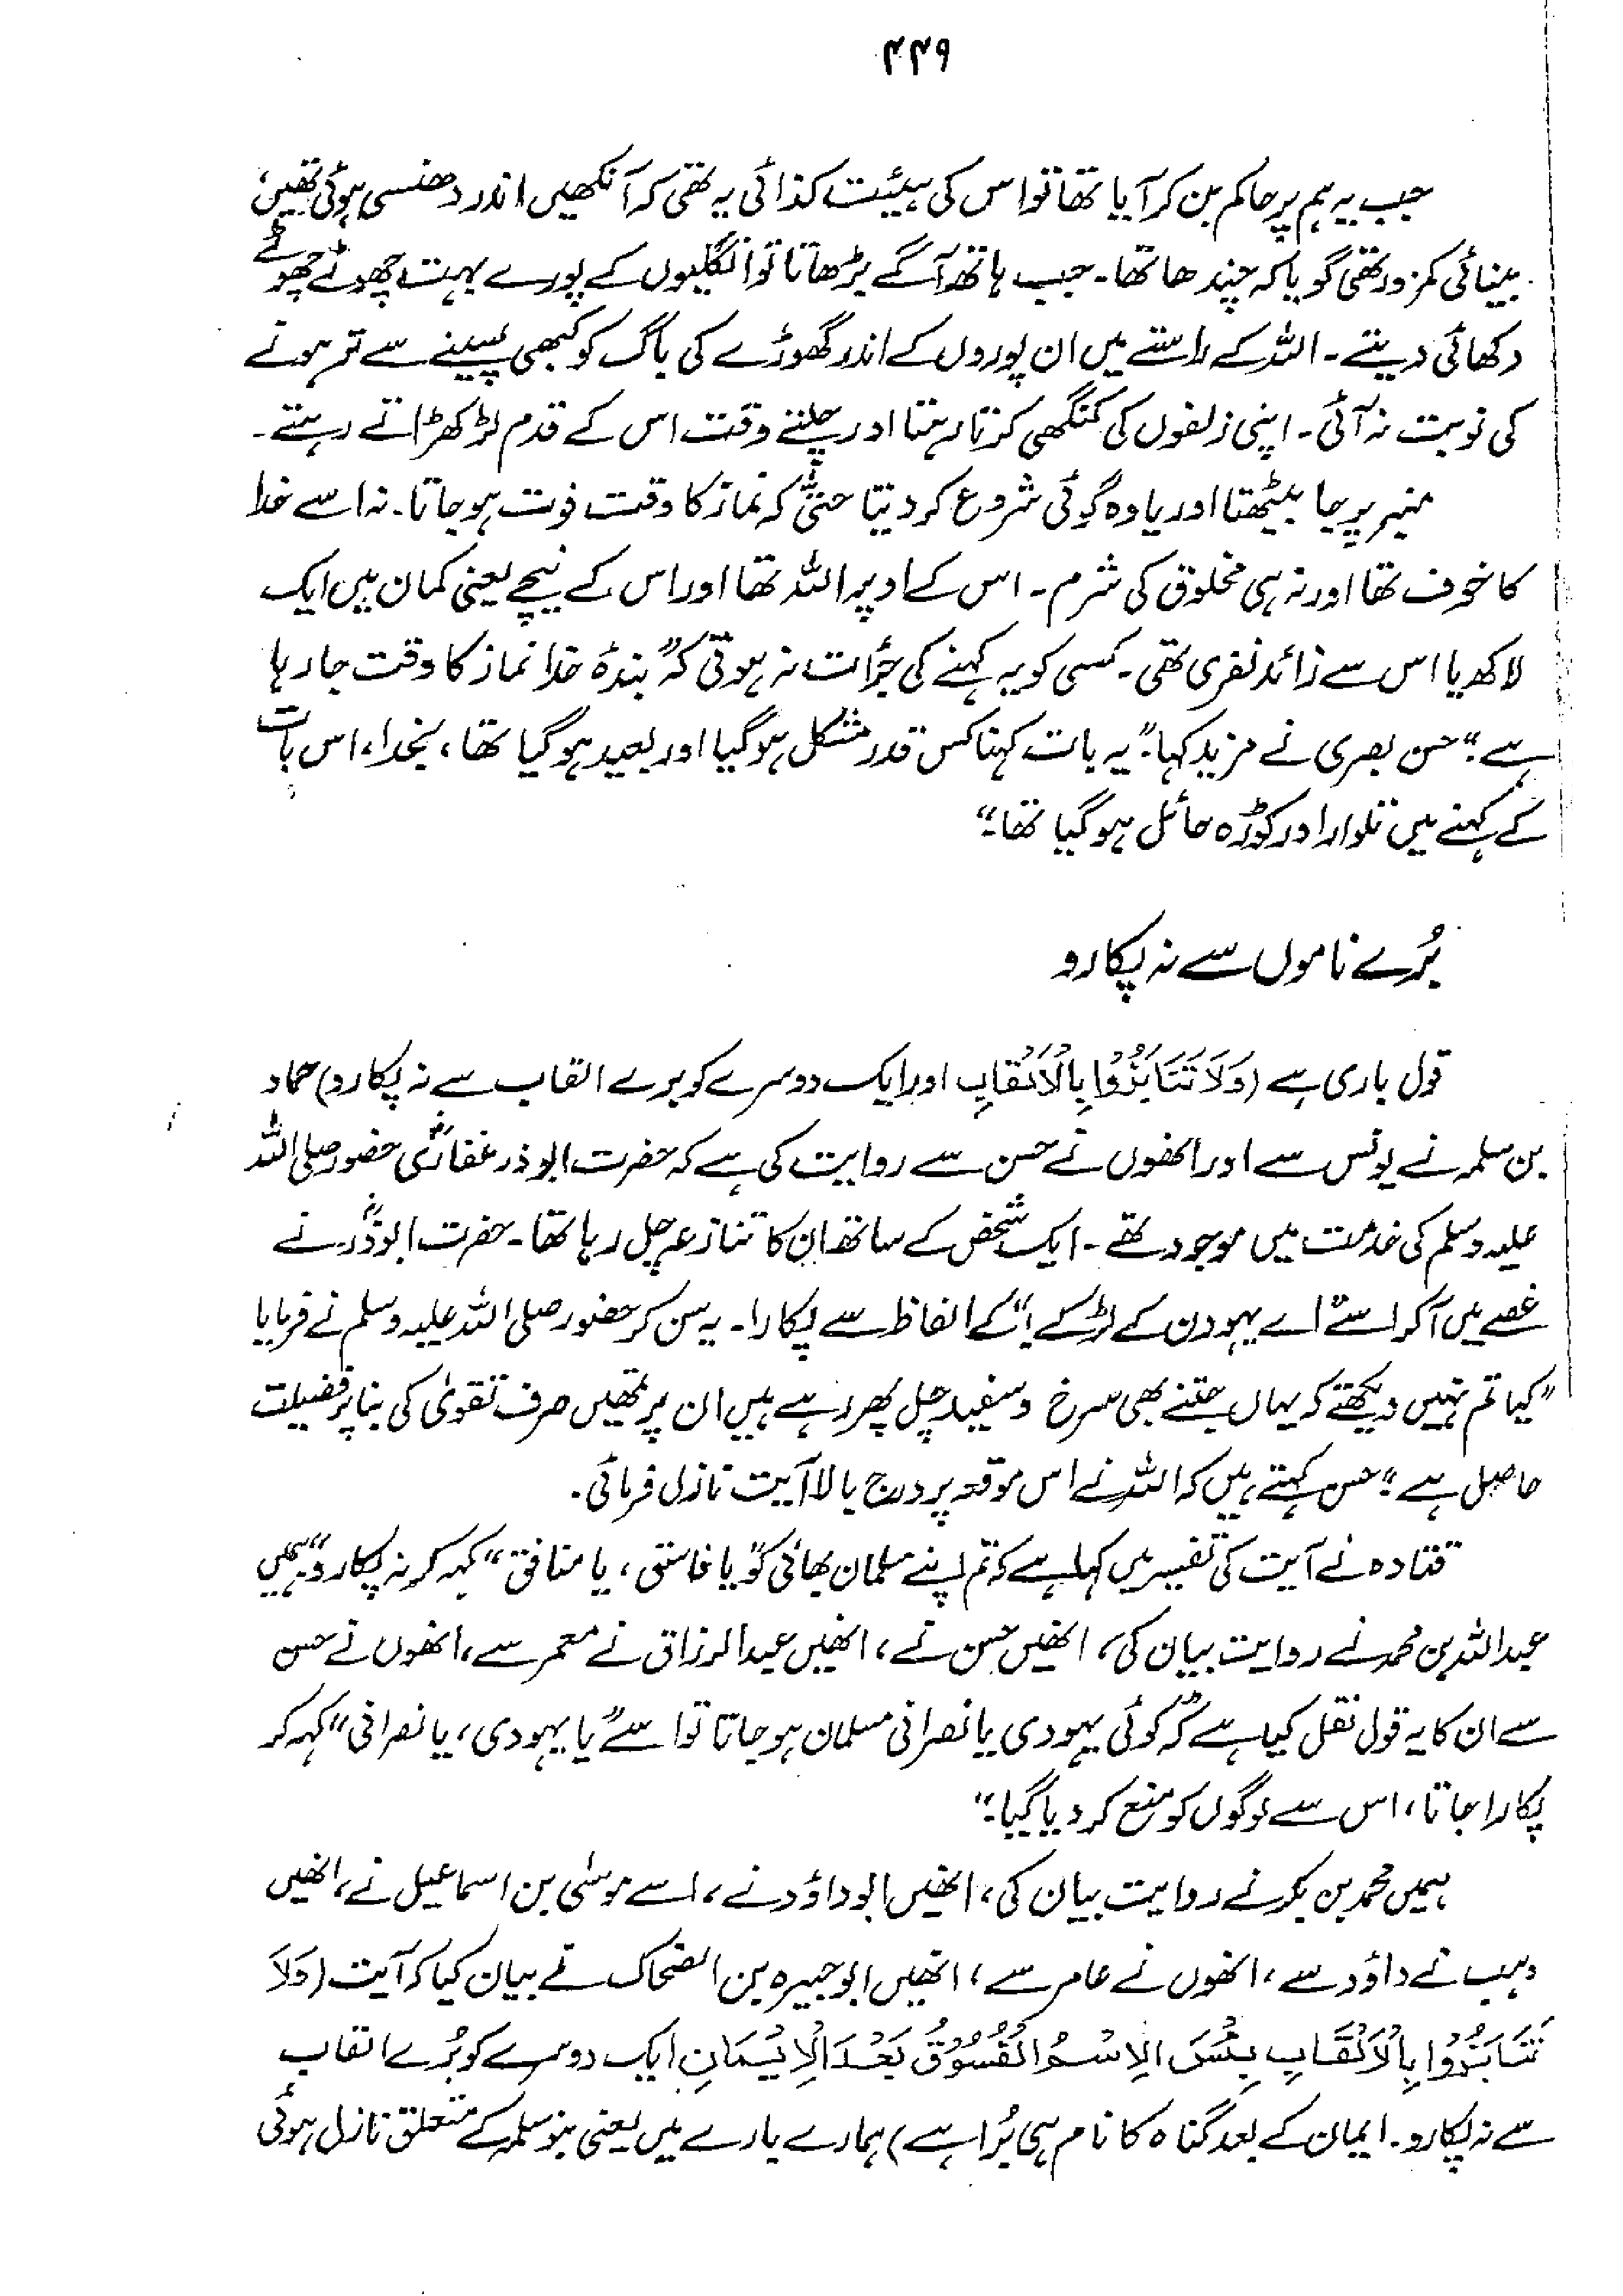 ۴۴۹
جب یہ ہم پر حاکم بن کر آیا تھا تو اس کی ہیئت کذائی یہ تھی کہ آنکھیں اندر دھنسی ہوئی تھیں،
بینائی کمزور تھی گویا کہ چندھا تھا۔ جب ہاتھ آگے بڑھاتا تو انگلیوں کے پورے بہت چھوٹے چھوٹے
دکھائی دیتے۔ اللہ کے راستے میں ان پوروں کے اندر گھوڑے کی باگ کو کبھی پسینے سے تر ہونے
کی نوبت نہ آئی۔ اپنی زلفوں کی کنگھی کرتا رہتا اور چلتے وقت اس کے قدم لڑکھڑاتے رہتے۔
منبر پر جا بیٹھتا اور یاوہ گوئی شروع کر دیتا حتیٰ کہ نماز کا وقت فوت ہو جاتا۔ نہ اسے خدا
کا خوف تھا اور نہ ہی مخلوق کی شرم۔ اس کے اوپر اللہ تھا اور اس کے نیچے یعنی کمان میں ایک
لاکھ یا اس سے زائد نفری تھی۔ کسی کو یہ کہنے کی جرأت نہ ہوتی کہ "بندۂ خدا نماز کا وقت جا رہا
ہے"؛ حسن بصری نے مزید کہا: "یہ بات کہنا کس قدر مشکل ہو گیا اور بعید ہو گیا تھا، بخدا، اس بات
کے کہنے میں تلوار اور کوڑہ حائل ہو گیا تھا۔"
بُرے ناموں سے نہ پکارو
قول باری ہے (وَلَا تَنَابَزُوْا بِالْاَلْقَابِ اور ایک دوسرے کو برے القاب سے نہ پکارو) حماد
بن سلمہ نے یونس سے اور انھوں نے حسن سے روایت کی ہے کہ حضرت ابوذر غفاریؓ حضور صلی اللہ
علیہ وسلم کی خدمت میں موجود تھے۔ ایک شخص کے ساتھ ان کا تنازعہ چل رہا تھا۔ حضرت ابوذرؓ نے
غصے میں آکر اسے "اے یہودن کے لڑکے!" کے الفاظ سے پکارا۔ یہ سن کر حضور صلی اللہ علیہ وسلم نے فرمایا
"کیا تم نہیں دیکھتے کہ یہاں جتنے بھی سرخ و سفید چل پھر رہے ہیں ان پر تمھیں صرف تقویٰ کی بنا پر فضیلت
حاصل ہے"؛ حسن کہتے ہیں کہ اللہ نے اس موقعہ پر درج بالا آیت نازل فرمائی۔
قتادہ نے آیت کی تفسیر میں کہا ہے کہ تم اپنے مسلمان بھائی کو "یا فاسق، یا منافق" کہہ کر نہ پکارو"، ہمیں
عبداللہ بن محمد نے روایت بیان کی، انھیں حسن نے، انھیں عبدالرزاق نے معمر سے، انھوں نے حسن
سے ان کا یہ قول نقل کیا ہے کہ "کوئی یہودی یا نصرانی مسلمان ہو جاتا تو اسے "یا یہودی، یا نصرانی" کہہ کر
پکارا جاتا، اس سے لوگوں کو منع کر دیا گیا۔"
ہمیں محمد بن بکر نے روایت بیان کی، انھیں ابوداؤد نے، اسے موسیٰ بن اسماعیل نے، انھیں
وہب نے داؤد سے، انھوں نے عامر سے، انھیں ابوجبیرہ بن الضحاک نے بیان کیا کہ آیت (وَلَا
تَنَابَزُوْا بِالْاَلْقَابِ بِئْسَ الِاسْمُ الْفُسُوْقُ بَعْدَ الْاِیْمَانِ ایک دوسرے کو بُرے القاب
سے نہ پکارو۔ ایمان کے بعد گناہ کا نام ہی بُرا ہے) ہمارے بارے میں یعنی بنو سلمہ کے متعلق نازل ہوئی